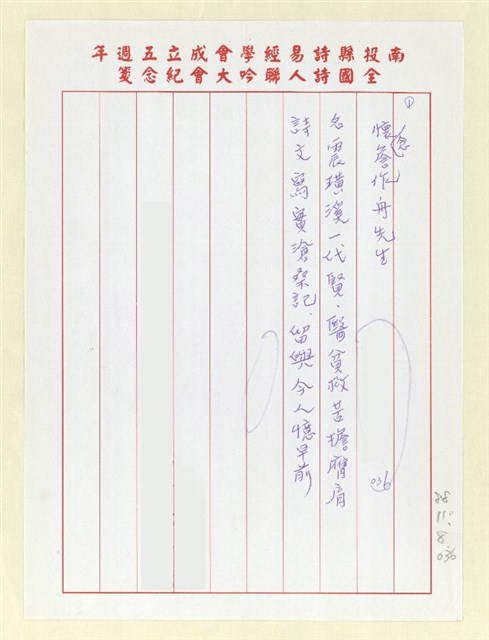 南投縣詩易經學會成立五週年
全國詩人聯吟大會紀念箋
①
懷念詹作舟先生
036
名震璜溪一代賢．醫貧救苦擔膺肩
詩文寫實滄桑記．留與今人憶早前
88
11.
8
036